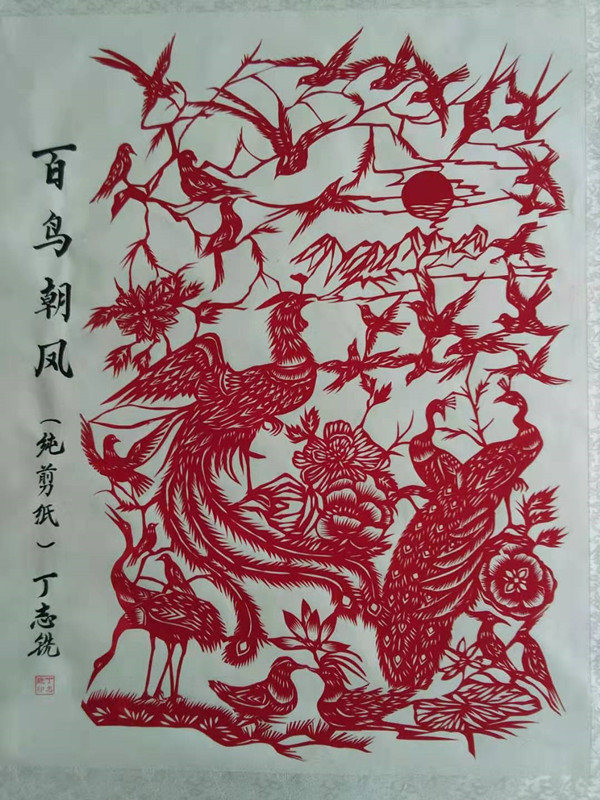 百鸟朝凤（纯剪纸）丁志铣